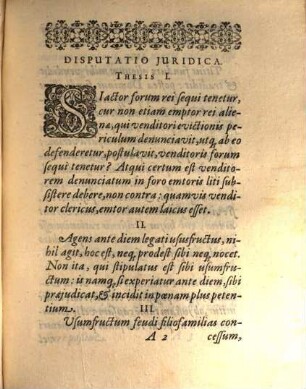 DISPUTATIO JURIDICA.
THESIS I.
SI actor forum rei sequi tenetur,
cur non etiam emptor rei alie-
næ, qui venditori evictionis pe-
riculum denunciavit, utq, ab eo
defenderetur, postulavit, venditoris forum
sequi tenetur? Atqui certum est vendito-
rem denunciatum in foro emtoris liti sub-
sistere debere, non contra: quamvis vendi-
tor clericus, emtor autem laicus esset.
II.
Agens ante diem legati ususfructus, ni-
hil agit, hoc est, neq; prodest sibi neq; nocet.
Non ita, qui stipulatus est sibi usumfru-
ctum: is namq; si experiatur ante diem, sibi
præjudicat, & incidit in pœnam plus peten-
tium.
III.
Usumfructum feudi filiofamilias con-
A 2 cessum,